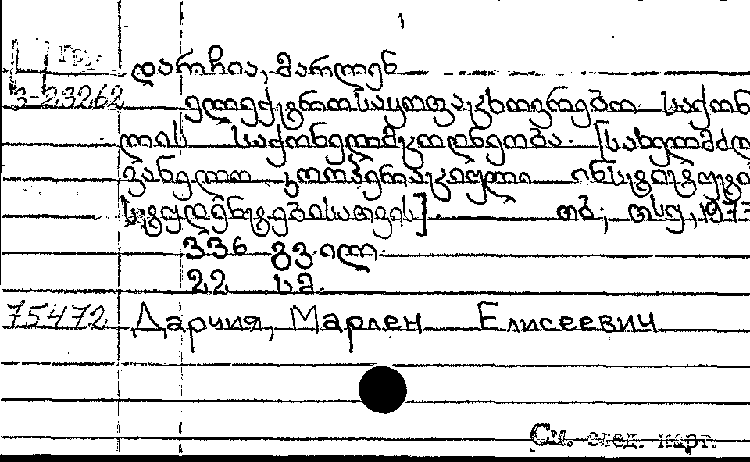 1
Гру.
დარჩია, მარლენ
3-23262 ელექტროსაყოფაცხოვრებო საქონ
ლის საქონელმცოდნეობა. [სახელმძღ
ვანელო კოოპერაციული ინსტიტუტი
სტუდენტებისათვის]. თბ., თსუ, 1973
336 გვ. ილ.
22 სმ.
75472 Дарчия, Марлен Елисеевич
См. след. карт.